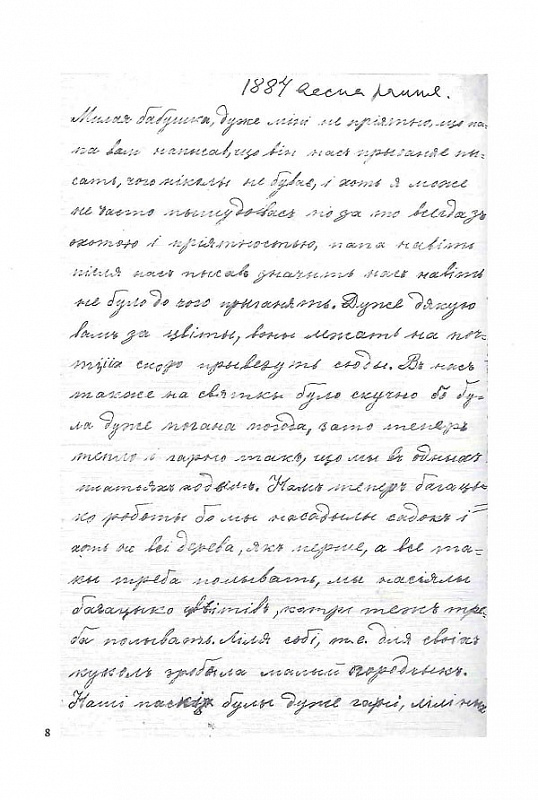 1884 весна рання.
Милая бабушка, дуже міні не пріятно, що па-
па вам написав, що він насъ прыганяе пы-
сать, чого ніколы не бувае, і хоть я може
не часто пышу до васъ но за то всігда зъ
охотою і пріятностью, папа навіть
після насъ пысав значить насъ навіть
не було до чого прыганять. Дуже дякую
вамъ за цвіты, воны лежать на поч-
ті іх скоро прывезуть сюды. Въ насъ
такоже на святкы було скучно бо бу-
ла дуже погана погода, зато теперъ
тепло і гарно такъ, що мы въ одныхъ
платтяхъ ходымъ. Намъ теперъ багаць-
ко роботы бо мы насадылы садокъ і
хоть не всі дерева, якъ перше, а все та-
кы треба полывать, мы насіялы
багацько цвітівъ, котрі тежъ тре-
ба полывать. Ліля собі, т.е. для своіхъ
куколъ зробыла малый городчыкъ.
Наші паскы булы дуже гарні,
8